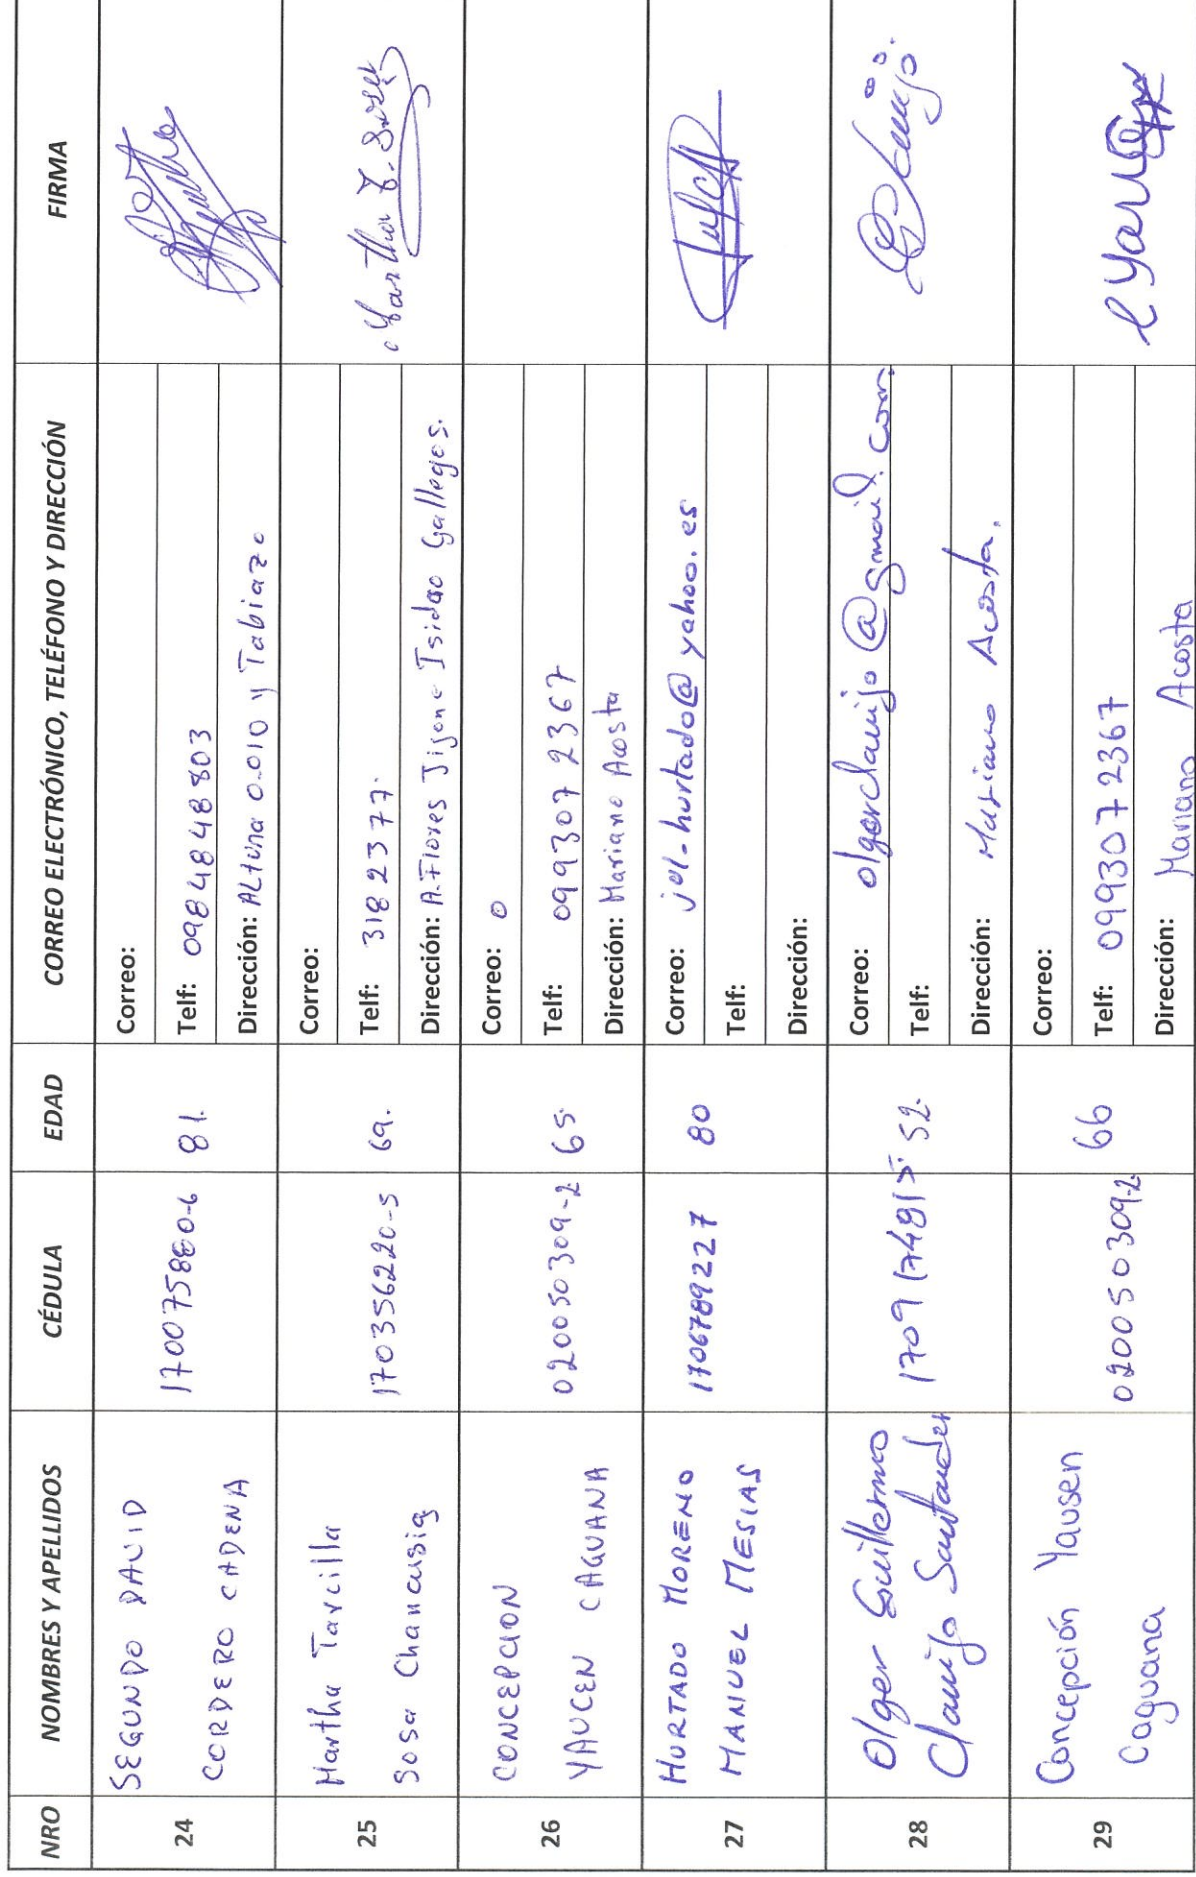 NRO NOMBRES Y APELLIDOS CÉDULA EDAD CORREO ELECTRÓNICO, TELÉFONO Y DIRECCIÓN FIRMA
24
SEGUNDO DAVID
CORDERO CADENA
170075880-6
81.
Correo:
Telf: 0984848803
Dirección: Altuna 0.010 y Tabiazo
25
Martha Tarcilla
Sosa Chancusig
170356220-5
69.
Correo:
Telf: 3182377.
Dirección: A. Flores Jijon e Isidro Gallegos.
Martha T. Sosa
26
CONCEPCION
YAUCEN CAGUANA
020050309-2
65.
Correo: 0
Telf: 0993072367
Dirección: Mariano Acosta
27
HURTADO MORENO
MANUEL MESIAS
1706789227
80
Correo: jol-hurtado@yahoo.es
Telf:
Dirección:
28
Olger Guillermo
Clavijo Santander
1709174815.
52.
Correo: olgerclavijo@gmail.com.
Telf:
Dirección: Mariano Acosta.
29
Concepción Yausen
Caguana
020050309-2
66
Correo:
Telf: 0993072367
Dirección: Mariano Acosta